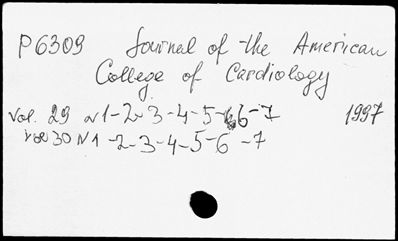 P6309 Journal of the American
College of Cardiology
Vol. 29 N1-2-3-4-5-6-7 1997
Vol 30 N1-2-3-4-5-6-7